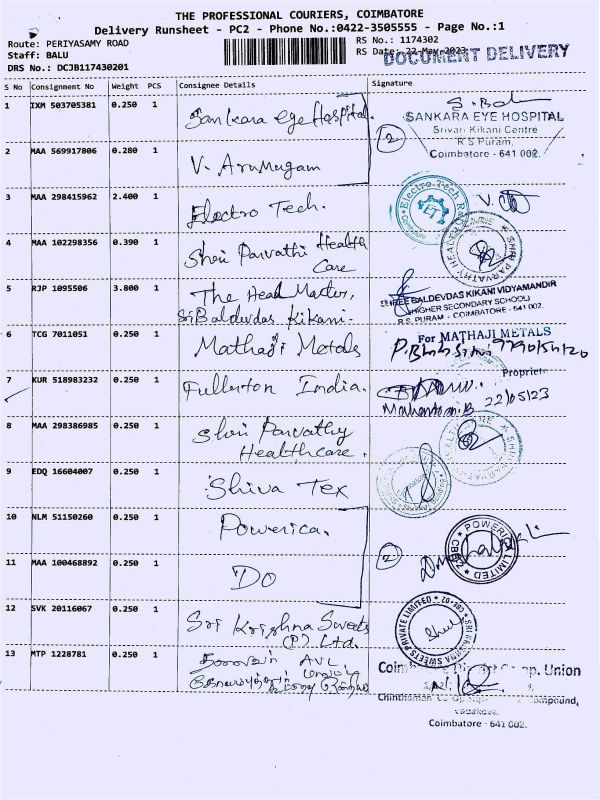 THE PROFESSIONAL COURIERS, COIMBATORE
Delivery Runsheet - PC2 - Phone No.:0422-3505555 - Page No.:1
Route: PERIYASAMY ROAD
RS No.: 1174302
Staff: BALU
RS Date: 22-May-2023
DOCUMENT DELIVERY
DRS No.: DCJB117430201
S No Consignment No Weight PCS Consignee Details Signature
1 IXM 503705381 0.250 1 Sankara eye Hospital
SANKARA EYE HOSPITAL
Srivari Kikani Centre
R.S Puram,
Coimbatore - 641 002.
2
2 MAA 569917806 0.280 1 V. Arumugam
3 MAA 298415962 2.400 1 Electro Tech.
4 MAA 102298356 0.390 1 Shri Parvathi Health
Care
5 RJP 1095506 3.800 1 The Head Master,
Sri Baldevdas Kikani.
SHREE BALDEVDAS KIKANI VIDYAMANDIR
HIGHER SECONDARY SCHOOL
R.S. PURAM - COIMBATORE - 641 002.
6 TCG 7011051 0.250 1 Mathaji Metals
For MATHAJI METALS
Propriet
7 KUR 518983232 0.250 1 Fullerton India.
22/05/23
8 MAA 298386985 0.250 1 Shri Parvathy
Healthcare.
9 EDQ 16604007 0.250 1 Shiva Tex
10 NLM 51150260 0.250 1 Powerica.
POWERICA LIMITED
2
11 MAA 100468892 0.250 1 Do
12 SVK 20116067 0.250 1 Sri Krishna Sweets
(P) Ltd.
SRI KRISHNA SWEETS PRIVATE LIMITED
13 MTP 1228781 0.250 1
Union
Coimbatore - 641 002.